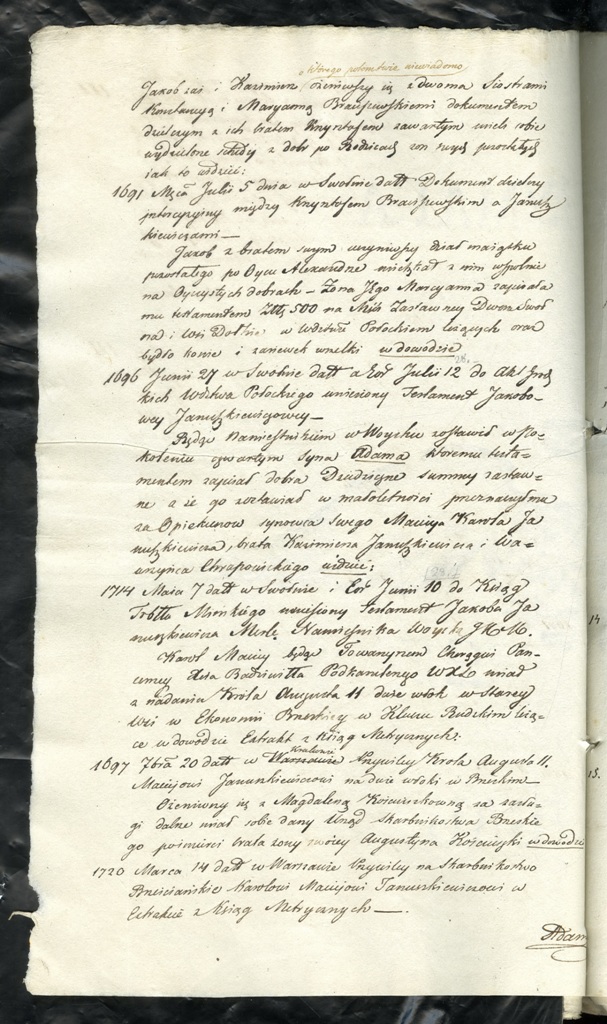 którego potomstwo niewiadome
Jakob zaś i Kazimierz ożeniwszy się z dwoma Siostrami
Konstancyą i Maryanną dokumentem
dzielczym z ich bratem Krzysztofem zawartym mieli sobie
wydzielone schedy z dobr po Rodzicach
iak to widzieć:
1691 Mca Julii 5 dnia w Swolnie datt Dokument dzielczy
intercyzyiny między Krzysztofem a Janusz
kiewiczami —
Jakob z bratem swym uczyniwszy dział maiątku
pozostałego po Oycu Alexandrze mieszkał z nim wspolnie
na Oyczystych dobrach — Zona Jego Maryanna zapisała
mu testamentem Złł 500 na Dworze Swol
na i Wsi w Wdztwie Połockiem leżących oraz
bydło konie i wszelki w dowodzie
1696 Junii 27 w Swolnie datt a Eor Julii 12 do Akt Grodz
kich Wdztwa Połockiego wniesiony Testament Jakobo-
wey Januszkiewiczowey —
Będąc Namiestnikiem w Woysku zostawił w Po-
koleniu czwartym syna Adama ktoremu testa-
mentem zapisał dobra Dziedziczne summy zastaw-
ne a że go zostawiał w małoletności przeznaczył mu
za Opiekunow synowca swego Macieja Karola Ja
nuszkiewicza, brata Kazimierza Januszkiewicza i Wa-
wrzyńca Chrapowickiego widzieć:
1714 Maia 7 datt w Swolnie i Eor Junii 10 do Xiąg
Trbłłu Minskiego wniesiony testament Jakoba Ja
nuszkiewicza Namiesnika Woyska
Karol Maciey będąc Towarzyszem Chorągwi Pan-
cerney Xcia Radziwiłła Podkanclerzego WXL miał
z nadania Krola Augusta II dwie włok w Starey
Wsi w Ekonomii Brzeskiey w Kluczu Rudzkim leżą-
ce w dowodzie Extrakt z Xiąg Metrycznych:
1697 7bra 20 datt w Warszawie Przywiley Krola Augusta II.
Maciejowi Januszkiewiczowi na dwie włoki w Brzeskim —
Ożeniwszy się z Magdaleną Kosciuszkowną za zasłu-
gi dalne miał sobie dany Urząd Skarbnikostwa Brzeskie
go po śmierci brata żony swoiey Augustyna w dowodzie
1720 Marca 14 datt w Warszawie Przywiley na Skarbnikostwo
Karolowi Maciejowi Januszkiewiczowi w
Extrakcie z Xiąg Metrycznych —.
Adam
14
15.